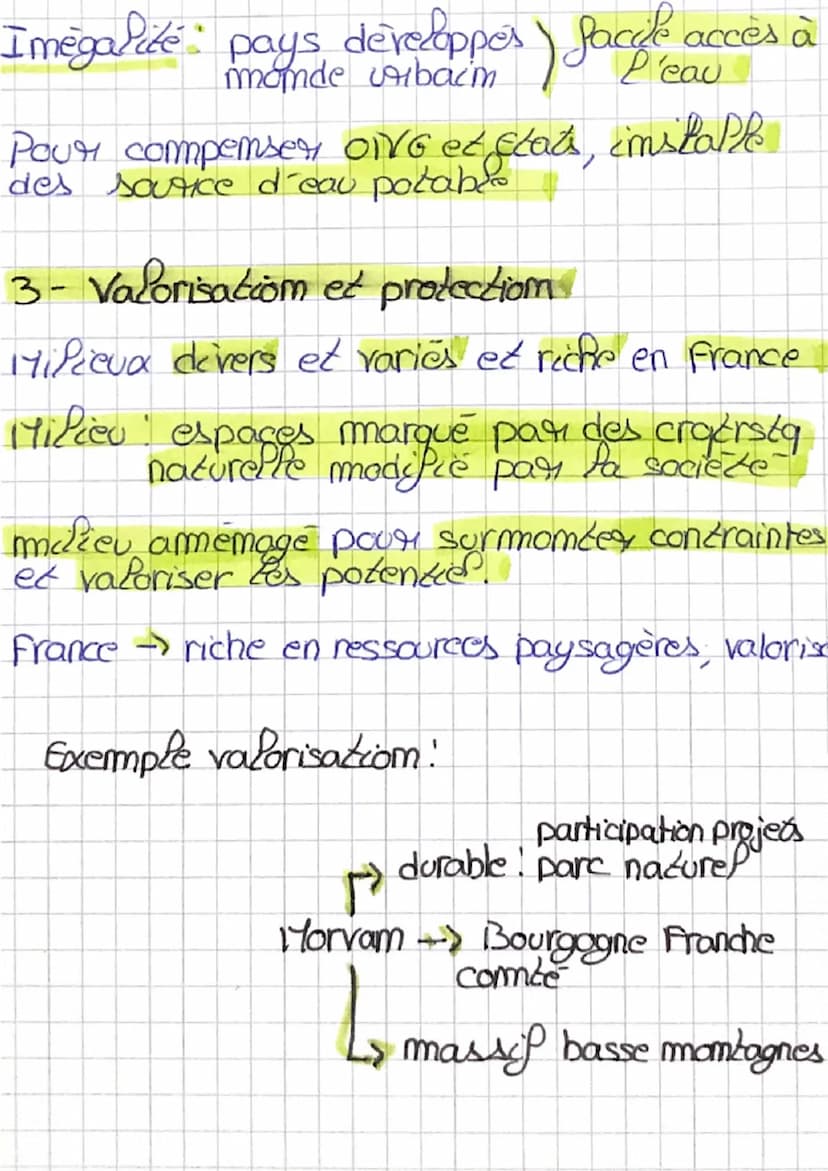 Inégalité : pays développés ) facile accès à
monde urbain l'eau
Pour compenser ONG et États, installe
des source d'eau potable
3 - Valorisation et protection
Milieux divers et variés et riche en France
Milieu : espaces marqué par des crqtrstq
naturelle modifié par la société
milieu annémagé pour surmonter contraintes
et valoriser les potentiel.
France → riche en ressources paysagères, valoris
Exemple valorisation :
participation projets
durable : parc naturel
Morvan → Bourgogne Franche
comté
massif basse montagnes